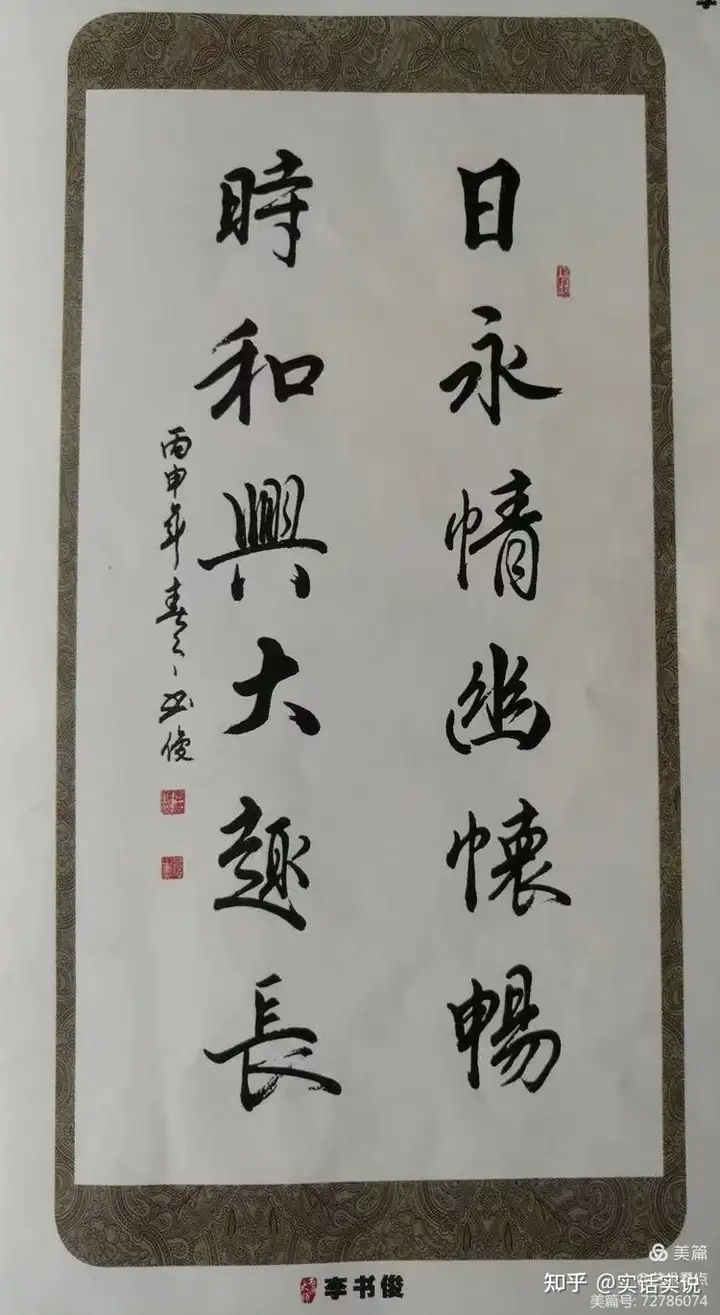 日永情幽懷暢
時和興大趣長
丙申年春之書俊
李书俊
美篇
知乎 @实话实说
美篇号: 72786074